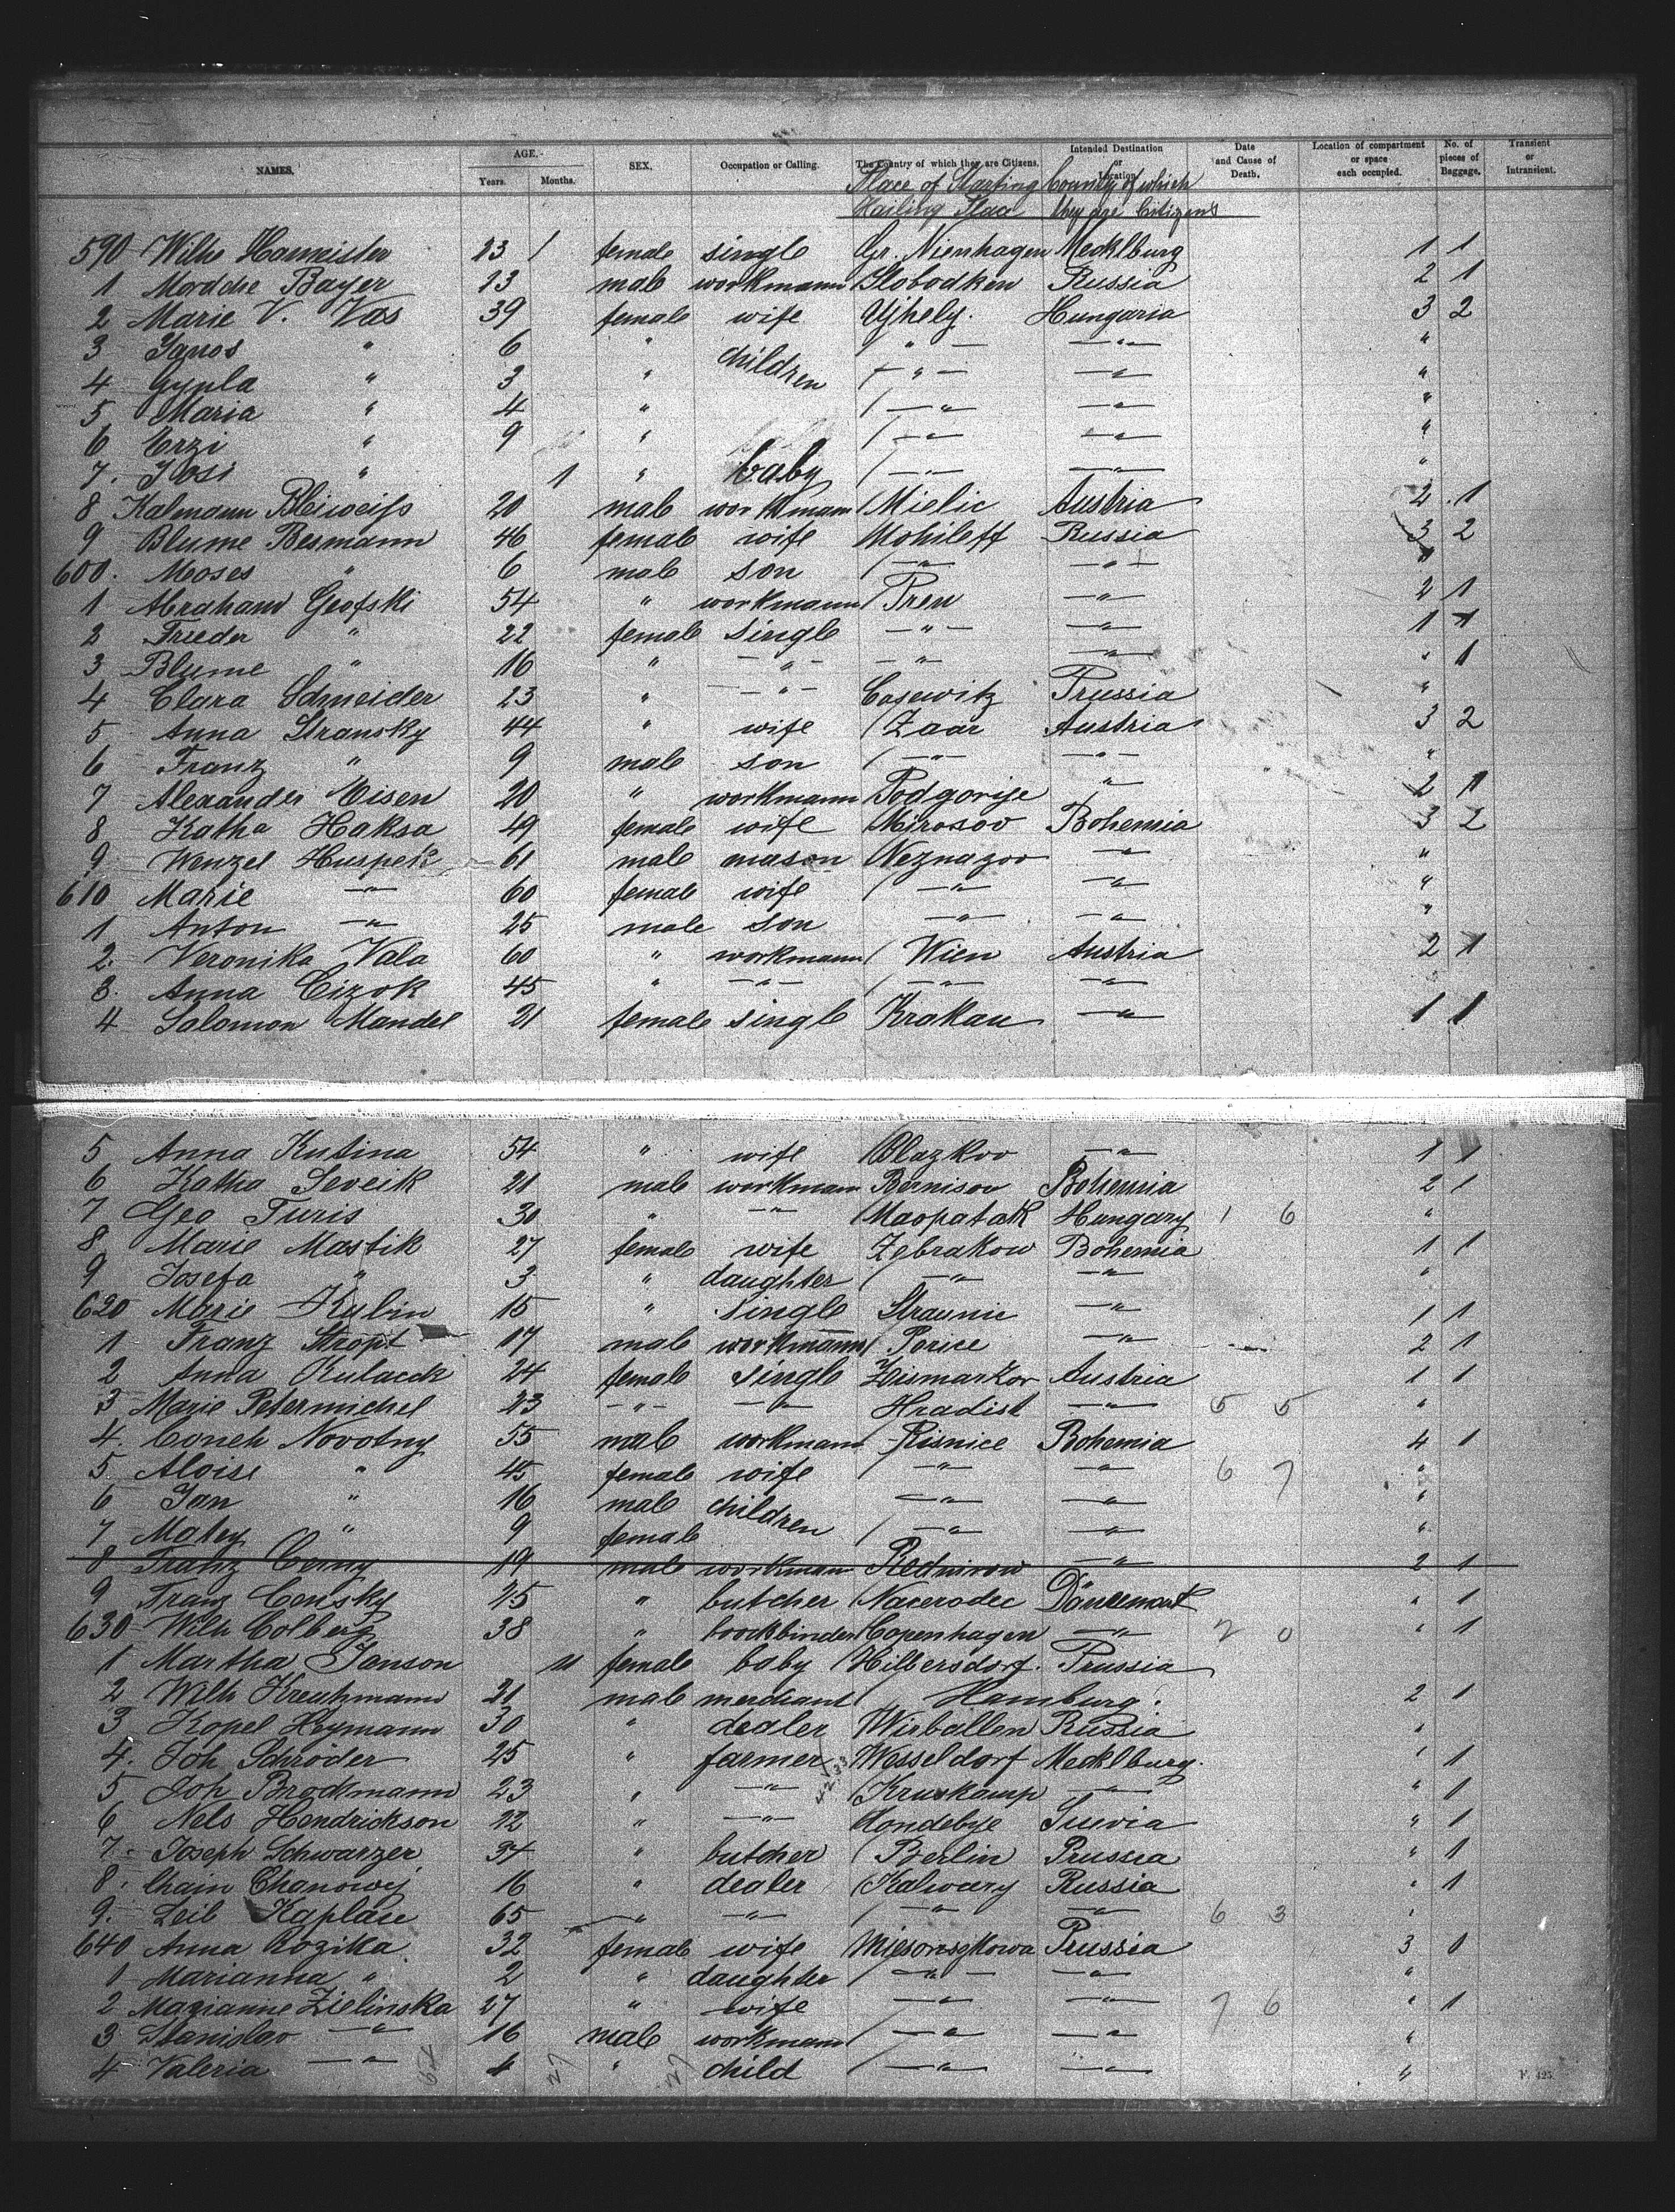 NAMES. AGE. Years. Months. SEX. Occupation or Calling. The Country of which they are Citizens. Intended Destination or Location. Date and Cause of Death. Location of compartment or space each occupied. No. of pieces of Baggage. Transient or Intransient.
Place of Starting County of which
Hailing Place they are Citizens
590 Wilhe Hameister 23 / female single Gr. Nienhagen Mecklburg 1 1
1 Mordche Bayer 23 male workmann Slobodken Russia 2 1
2 Marie V. Vas 39 female wife Ujhely. Hungaria 3 2
3 Janos " 6 " children — " — — " — "
4 Gyula " 3 " — " — — " — "
5 Maria " 4 " — " — " "
6 Erzi " 9 " — " — " "
7. Josi " 1 " baby — " — — " — "
8 Kalmann Bleiweiss 20 male workmann Mielic Austria 2 1
9 Blume Besmann 46 female wife Mohileff Russia 3 2
600. Moses " 6 male son — " — — " — "
1 Abraham Geofski 54 " workmann Pren — " — 2 1
2 Frieda " 22 female single — " — — " — 1 1
3 Blume " 16 " — " — — " — — " — " 1
4 Clara Schneider 23 " — " — Cosewitz Prussia "
5 Anna Stransky 44 " wife Zaar Austria 3 2
6 Franz " 9 male son — " — — " — "
7 Alexander Eisen 20 " workmann Podgorije " 2 1
8 Katha Haksa 49 female wife Mirosov Bohemia 3 2
9 Wenzel Huspek 61 male mason Neznazov — " — "
610 Marie — " — 60 female wife — " — — " — "
1 Anton — " — 25 male son — " — — " — "
2. Veronika Vala 60 " workmann Wien Austria 2 1
3. Anna Cizok 45 " — " — — " — — " —
4 Salomon Mandel 21 female single Krakau — " — 1 1
5 Anna Kutina 54 " wife Blazkov — " — 1 1
6 Katha Seveik 21 male workmann Bernisov Bohemia 2 1
7 Geo Turis 30 " — " — Maopatak Hungary 1 6 "
8 Marie Mastik 27 female wife Zebrakow Bohemia 1 1
9 Josefa " 3 " daughter — " — — " — "
620 Marie Kubin 15 " single Straunic — " — 1 1
1 Franz Stropt 17 male workmann Porice — " — 2 1
2 Anna Kulacek 24 female single Zismarkov Austria 1 1
3 Marie Petermichel 23 — " — — " — Hradist — " — 5 5 "
4. Conek Novotny 55 male workmann Risnice Bohemia 4 1
5. Aloise " 45 female wife — " — — " — 6 7 "
6 Jan " 16 male children — " — — " — "
7 Matey " 9 female — " — — " — "
8 Franz Cerny 19 male workmann Rednirow — " — 2 1
9 Franz Consky 25 " butcher Nacerodec Dänemark " 1
630 Wilh Colberg 38 " bookbinder Copenhagen — " — 2 0 " 1
1 Martha Janson 11 female baby Hilbersdorf. Prussia
2 Wilh Kreutzmann 21 male merchant Hamburg. 2 1
3 Kopel Heymann 30 " dealer Wirballen Russia "
4. Joh Schröder 25 " farmer Wesseldorf Mecklburg. " 1
5 Joh Brockmann 23 " — " — Kruskamp — " — " 1
6 Nels Hendrickson 22 " — " — Hondebye Suevia " 1
7. Joseph Schwarzer 34 " butcher Berlin Prussia " 1
8. Chain Chanowij 16 " dealer Kalwary Russia " 1
9. Leib Kaplan 65 — " — " — — " — — " — 6 3 "
640 Anna Rozika 32 female wife Miesonskowa Prussia 3 1
1 Marianna " 2 " daughter — " — — " — "
2 Marianne Zielinska 27 " wife — " — — " — 7 6 " 1
3 Stanislav — " — 16 male workmann — " — — " — "
4 Valeria — " — 4 " child — " — — " — "
F. 425.